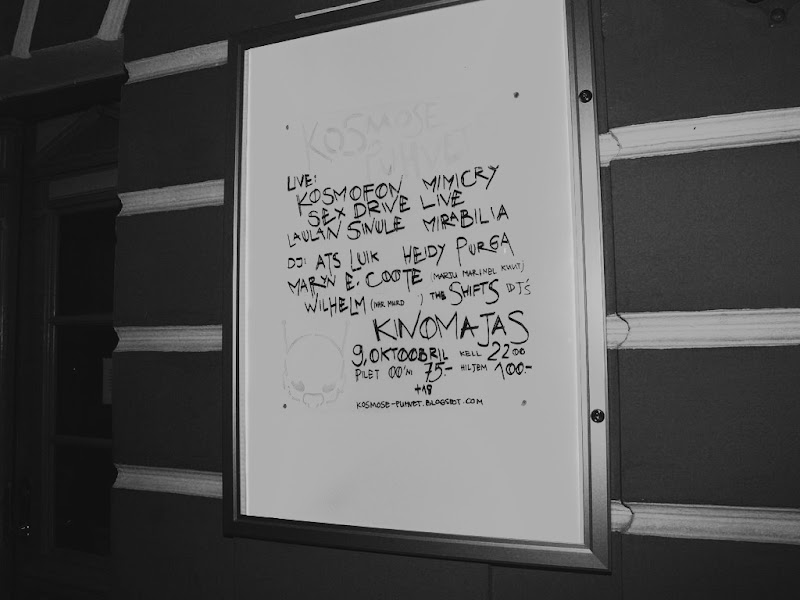 KOSMOSE
PUHVET
LIVE:
KOSMOFON MIMICRY
SEX DRIVE LIVE
LAULAN SINULE MIRABILIA
DJ: ATS LUIK HEIDY PURGA
MARYN E. COOTE (MARJU MARINEL KUUT)
WILHELM (IVAR MURD) THE SHIFTS DJ'S
KINOMAJAS
9. OKTOOBRIL KELL 22 00
PILET 00'NI 75.- HILJEM 100.-
+18
KOSMOSE-PUHVET.BLOGSPOT.COM